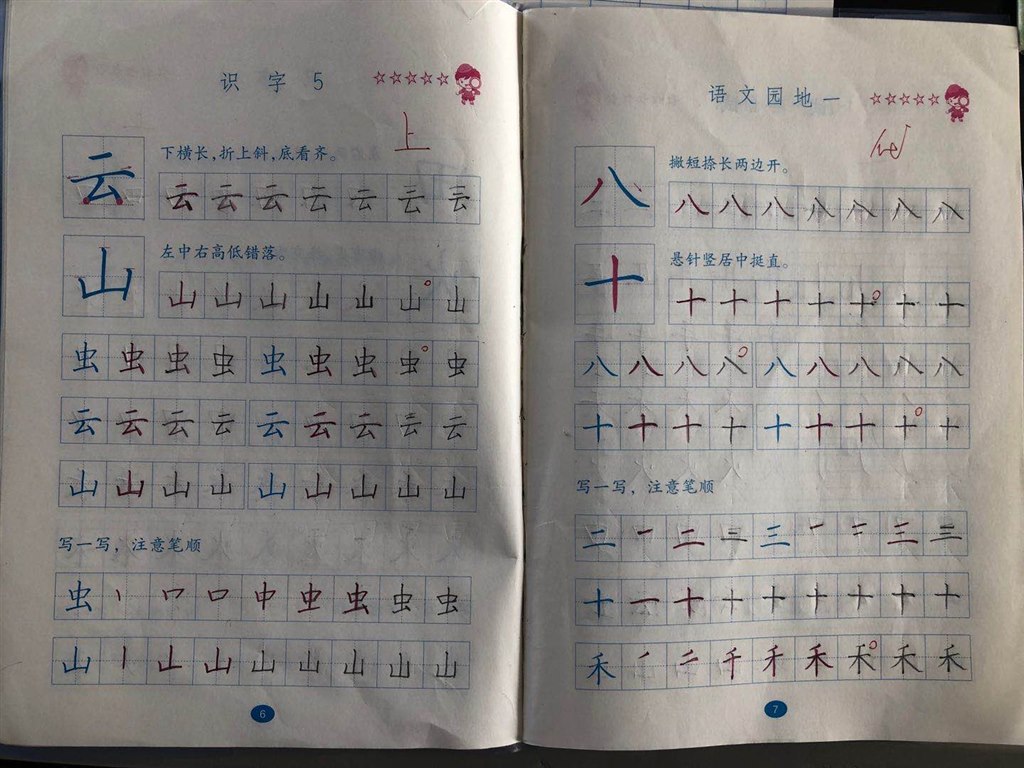 识字5
上
下横长,折上斜,底看齐。
云 云 云 云 云 云 云 云
左中右高低错落。
山 山 山 山 山 山 山 山
虫 虫 虫 虫 虫 虫 虫 虫 虫
云 云 云 云 云 云 云 云 云
山 山 山 山 山 山 山 山 山
写一写，注意笔顺
虫 丨 口 中 虫 虫 虫
山 丨 山 山 山 山 山 山
6
语文园地一
撇短捺长两边开。
八 八 八 八 八 八 八 八
悬针竖居中挺直。
十 十 十 十 十 十 十 十
八 八 八 八 八 八 八 八 八
十 十 十 十 十 十 十 十 十
写一写，注意笔顺
二 一 二 三 三 一 二 三 三
十 一 十 十 十 十 十 十 十
禾 千 禾 禾 禾 禾
7